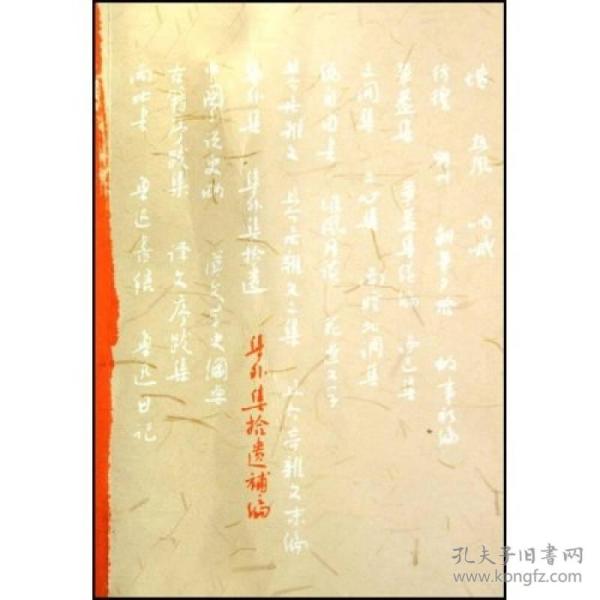 墳 热风 呐喊
彷徨 野草 朝華夕拾 故事新编
華盖集 華盖集续编 而已集
三闲集 二心集 南腔北调集
伪自由书 准风月谈 花边文学
且介亭雜文 且介亭雜文二集 且介亭雜文末编
集外集 集外集拾遗 集外集拾遗補编
中国小说史略 汉文学史纲要
古籍序跋集 译文序跋集
两地书 鲁迅书信 鲁迅日记
孔夫子旧书网
www.kongfz.com